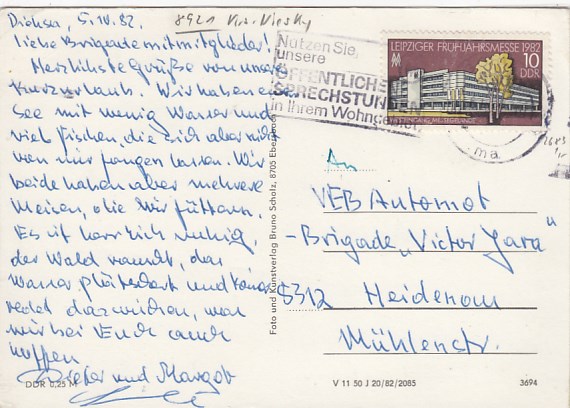 Diehsa, 5.IV.82.
8921 Krs. Niesky
Liebe Brigademitmitglieder!
Herzlichste Grüße von unserem
Kurzurlaub. Wir haben einen
See mit wenig Wasser und
viel Fischen, die sich aber nicht
von mir fangen lassen. Wir
beide haben aber mehrere
Meisen, die wir füttern.
Es ist herrlich ruhig,
der Wald rauscht, das
Wasser plätschert und keiner
redet dazwischen, was
wir bei Euch auch
hoffen
Dieter und Margot
DDR 0,25 M
Foto und Kunstverlag Bruno Scholz, 8705 Ebersbach
Nutzen Sie
unsere
ÖFFENTLICHE
SPRECHSTUNDE
in Ihrem Wohngebiet
LEIPZIGER FRÜHJAHRSMESSE 1982
10
DDR
An
VEB Automat
-Brigade "Victor Jara"
8312 Heidenau
Mühlenstr.
V 11 50 J 20/82/2085
3694